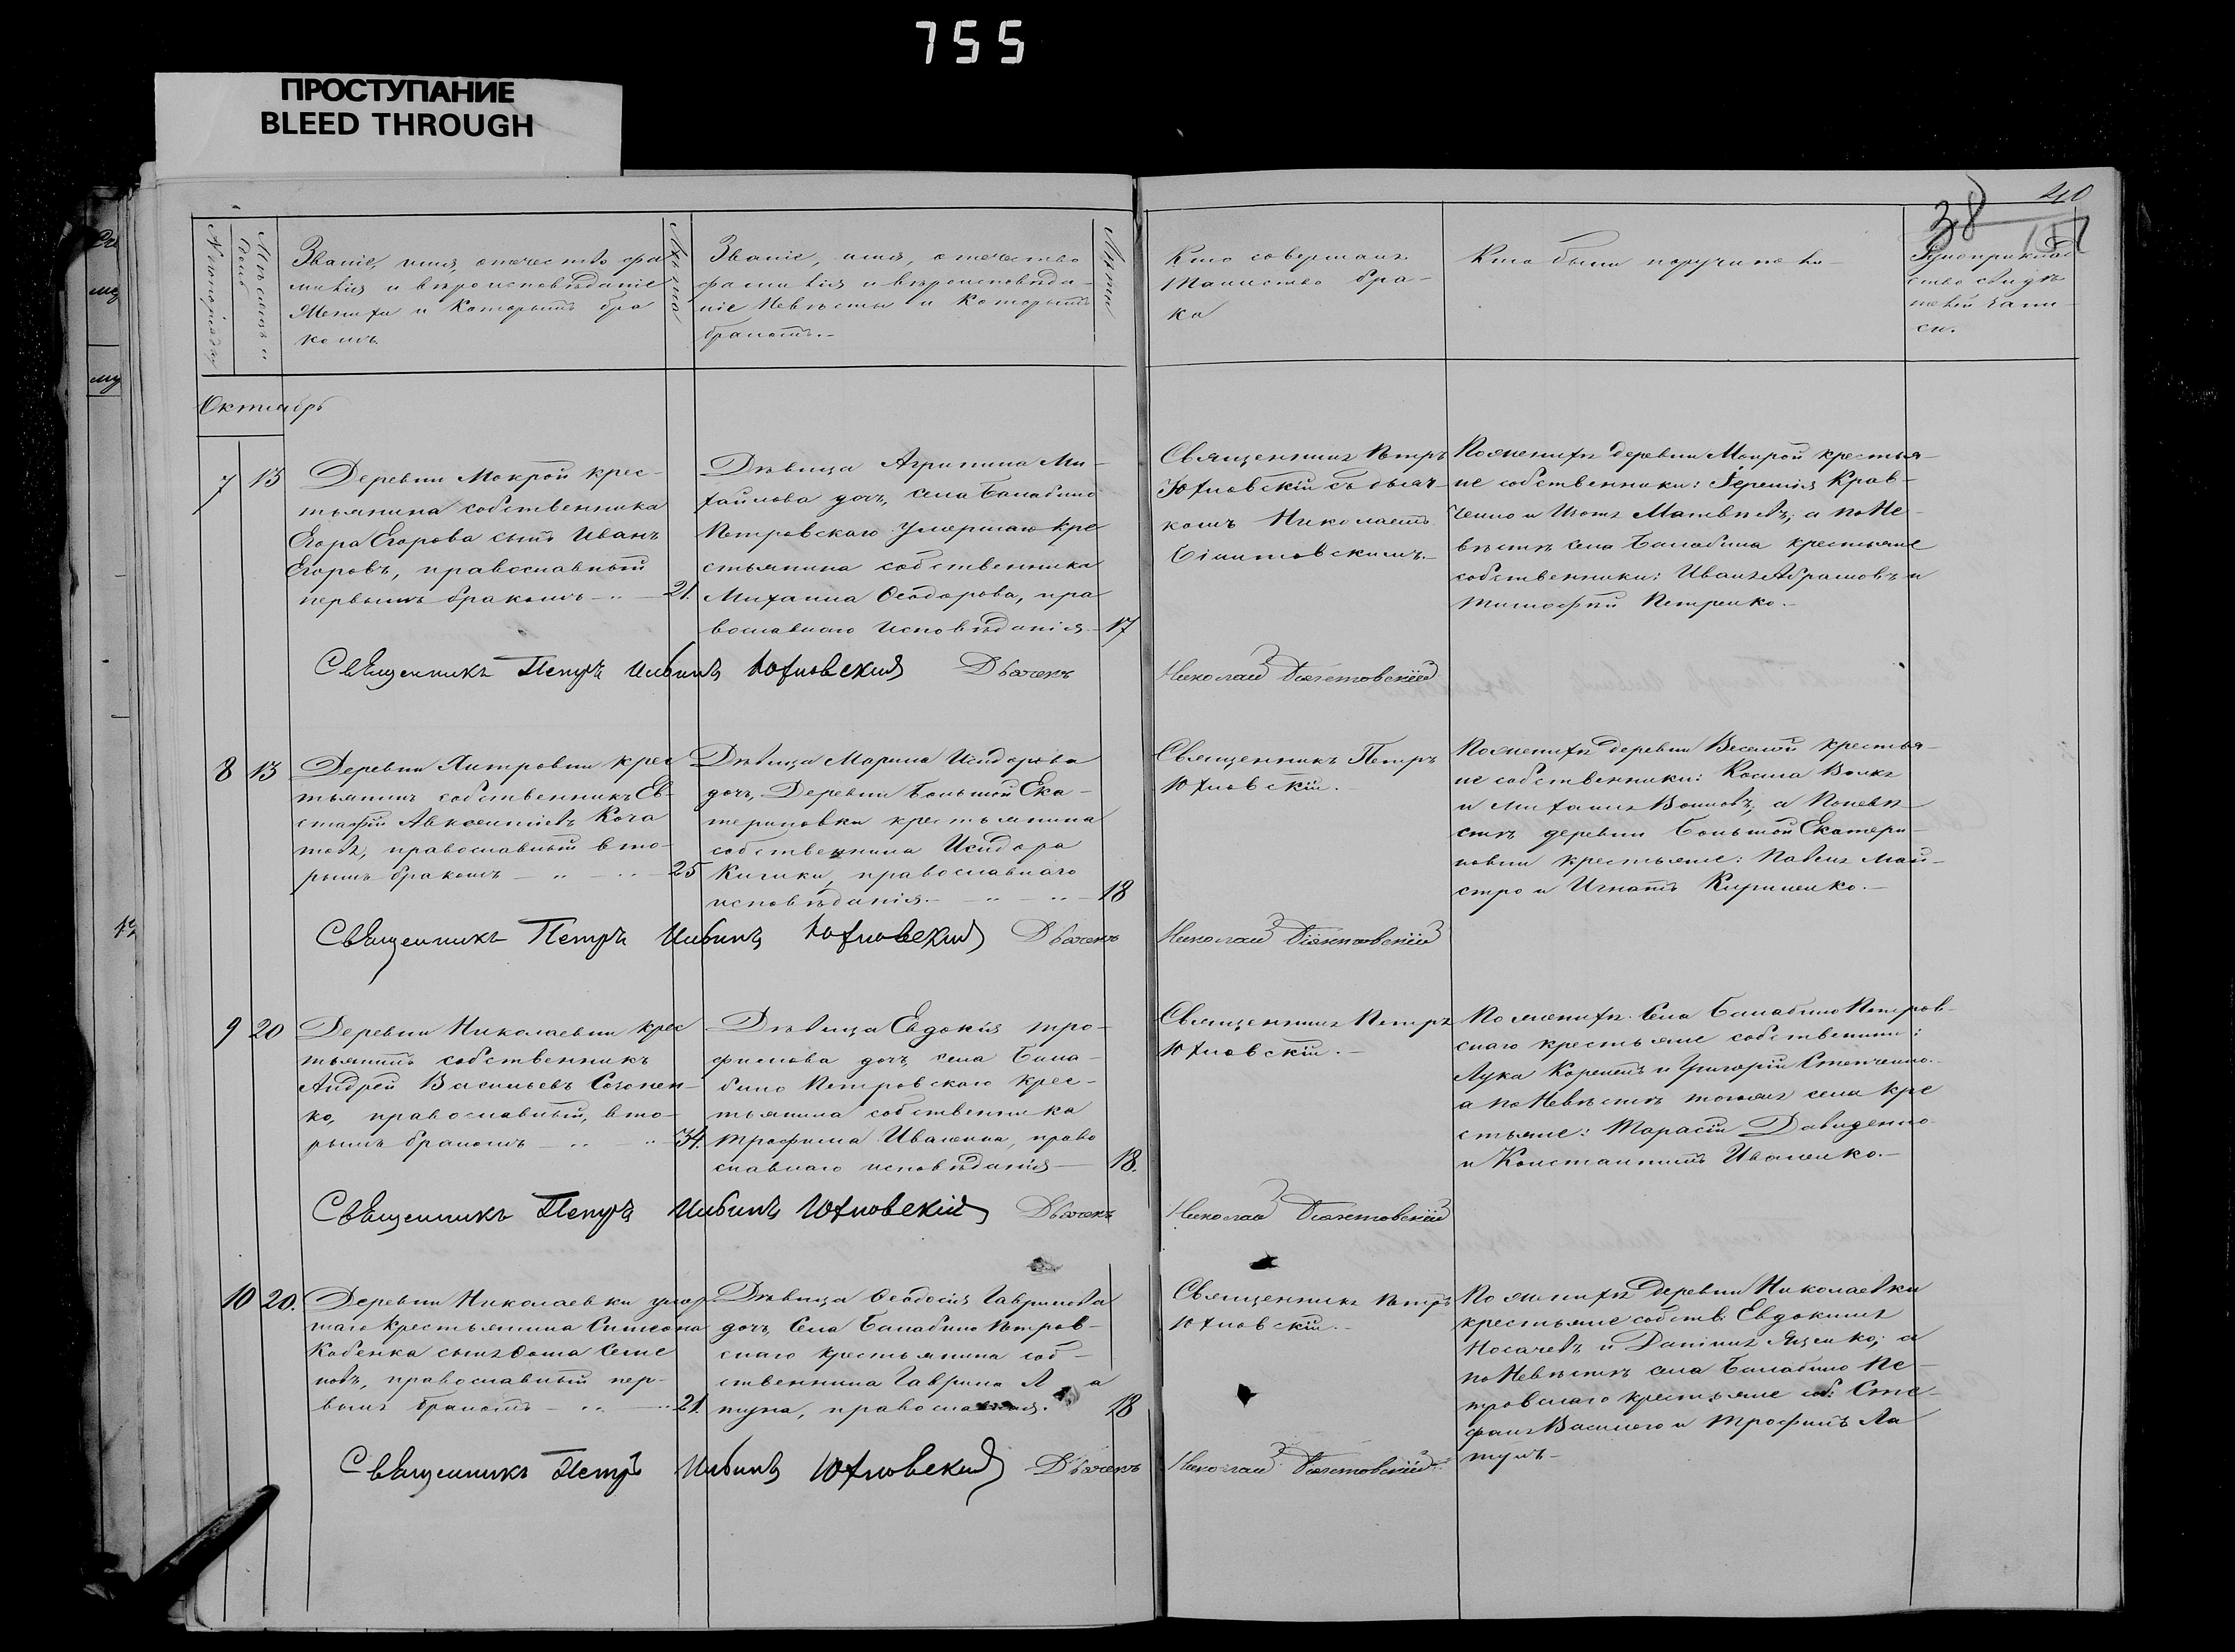 755
ПРОСТУПАНИЕ
BLEED THROUGH
40
38
Мѣсяцъ и
день
Званіе, имя, отечество фа
милія и вѣроисповѣданіе
Жениха и которымъ бра
комъ.
Лѣта
Званіе, имя, отечество
фамилія и вѣроисповѣда-
ніе Невѣсты и которымъ
бракомъ.-
Лѣта
Кто совершалъ
Таинство бра-
ка
Кто были поручители
Рукоприклад
ство свидѣ
телей запи-
си.
Октябрь
7
13
Деревни Мокрой крес-
тьянина собственника
Егора Егорова сынъ Иванъ
Егоровъ, православный
первымъ бракомъ
21.
Дѣвица Агрипина Ми-
хайлова дочь, села Балабино
Петровскаго умершаго кре
стьянина собственника
Михаила Ѳеодорова, пра
вославнаго исповѣданія
17
Священникъ Петръ
Юхновскій съ дьяч-
комъ Николаемъ
По женихѣ деревни Мокрой крестья-
не собственники: Іеремія Крав-
ченко и Матвѣевъ; а по Не-
вѣстѣ села Балабина крестьяне
собственники: Иванъ Абрамовъ и
Тимофей Петренко.-
Священникъ Петръ Юхновскій Дьячекъ
Николай
8
13
Деревни крес
тьянинъ собственникъ Ев-
стафій Авксентіевъ
православный вто-
рымъ бракомъ
25
Дѣвица Марина Исидорова
дочь, Деревни Большой Ека-
териновки крестьянина
собственника Исидора
православнаго
исповѣданія.-
18
Священникъ Петръ
Юхновскій.
По женихѣ деревни Веселой крестья-
не собственники: Косма Волкъ
и Михаилъ Воиновъ, а по невѣ
стѣ деревни Большой Екатери-
новки крестьяне: Павелъ Май-
стро и Игнатъ Кириленко.-
Священникъ Петръ Юхновскій Дьячекъ
Николай
9
20
Деревни Николаевки крес
тьянинъ собственникъ
Андрей Васильевъ Созонен-
ко, православный, вто-
рымъ бракомъ
34.
Дѣвица Евдокія Тро-
фимова дочь, села Бала-
бино Петровскаго крес-
тьянина собственника
Трофима Иваненка, право
славнаго исповѣданія
18.
Священникъ Петръ
Юхновскій.-
По женихѣ села Балабино Петров-
скаго крестьяне собственники:
Лука и Григорій Степченко
а по Невѣстѣ тогожъ села кре
стьяне: Тарасій Давиденко
и Константинъ Иваненко.-
Священникъ Петръ Юхновскій Дьячекъ
Николай
10
20.
Деревни Николаевки умер
шаго крестьянина Симеона
Кобенка сынъ Ѳома Семе
новъ, православный пер-
вымъ бракомъ
21.
Дѣвица Ѳеодосія Гаврилова
дочь, Села Балабино Петров-
скаго крестьянина соб-
ственника Гаврила Ла
тупа, православная.
18
Священникъ Петръ
Юхновскій.-
По женихѣ деревни Николаевки
крестьяне собств: Евдокимъ
Носачевъ и Даніилъ Яценко; а
по Невѣстѣ села Балабино Пе-
тровскаго крестьяне соб: Сте-
фанъ и Трофимъ Ла
тупъ-
Священникъ Петръ Юхновскій Дьячекъ
Николай